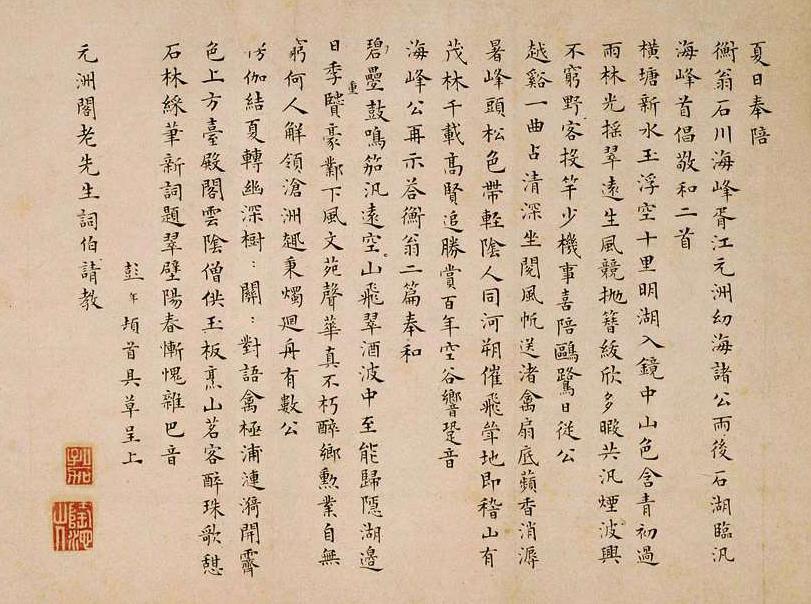 夏日奉陪
衡翁石川海峰胥江元洲幼海諸公雨後石湖臨汎
海峰首倡敬和二首
橫塘新水玉浮空十里明湖入鏡中山色含青初過
雨林光搖翠遠生風競拋簪紱欣多暇共汎煙波興
不窮野客投竿少機事喜陪鷗鷺日從公
越谿一曲占清深坐閱風帆送渚禽扇底蘋香消溽
暑峰頭松色帶輕陰人同河朔催飛斝地即稽山有
茂林千載高賢追勝賞百年空谷響跫音
海峰公再示荅衡翁二篇奉和
碧疊重鼓鳴笳汎遠空山飛翠酒波中至能歸隱湖邊
日季贒豪鄴下風文苑聲華真不朽醉鄉勳業自無
窮何人解領滄洲趣秉燭迴舟有數公
伽結夏轉幽深樹：關：對語禽極浦漣漪開霽
色上方臺殿閣雲陰僧供玉板烹山茗客醉珠歌憩
石林綵筆新詞題翠壁陽春慚愧雜巴音
彭年頓首具草呈上
元洲閣老先生詞伯請教